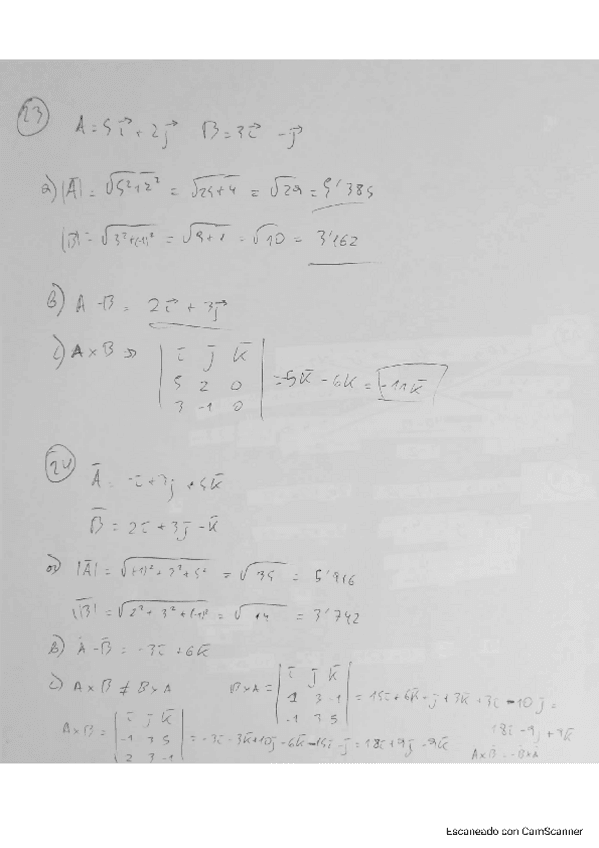 23
A = 5i + 2j B = 3i - j
a) |A| = √5²+2² = √25+4 = √29 = 5'385
|B| = √3²+(-1)² = √9+1 = √10 = 3'162
b) A - B = 2i + 3j
c) A x B => | i j k | = -5k - 6k = -11k
5 2 0
3 -1 0
24
A = -i + 3j + 5k
B = 2i + 3j - k
a) |A| = √(-1)² + 3² + 5² = √35 = 5'916
|B| = √2² + 3² + (-1)² = √14 = 3'742
b) A - B = -3i + 6k
c) A x B ≠ B x A B x A = | i j k | = 15i + 6k - j + 3k + 3i - 10j =
3 -1
-1 3 5
18i - 9j + 9k
A x B = | i j k | = -3i - 3k + 10j - 6k - 15i - j = 18i + 9j - 9k
-1 3 5
2 3 -1
A x B = -B x A
Escaneado con CamScanner